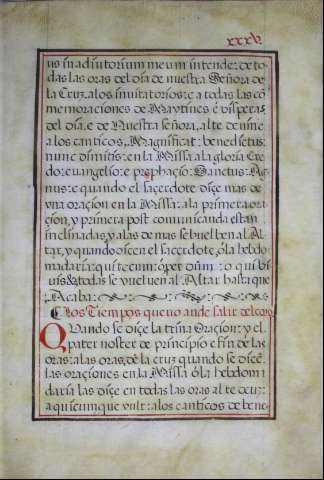 xxxv.
us in adiutorium meum intende: de to
das las oras del dia de nuestra Señora de
la Cruz, a los invitatorios: e a todas las cõ
memoraciones de Maytines e visperas
del dia. e de Nuestra señora, al te deume
a los canticos, Magnificat: benedictus:
nunc dimitis: en la Missa a la gloria Cre
do: euangelio: e prephaçio: Sanctus: Ag
nus: e quando el saçerdote diçe mas de
vna oraçion en la Missa: a la primera ora
çion, y primera post comunicanda estan
inclinadas, y a las de mas se buelben al Al
tar, y quando diçen el saçerdote, o la hebdo
madaria: qui tecum: o per dñm: o qui bi
vis & todas se vuelven al Altar hasta que
Acaba:
Los Tiempos que no ande salir del coro
Quando se diçe la trina Oraçion: y el
pater noster de prinçipio e fin de las
oras: a las oras, de la cruz quando se diçẽ
las oraçiones en la Missa o la hebdom
daria las diçe en todas las oras al te deuz:
a quicumque vult: a los canticos de bene